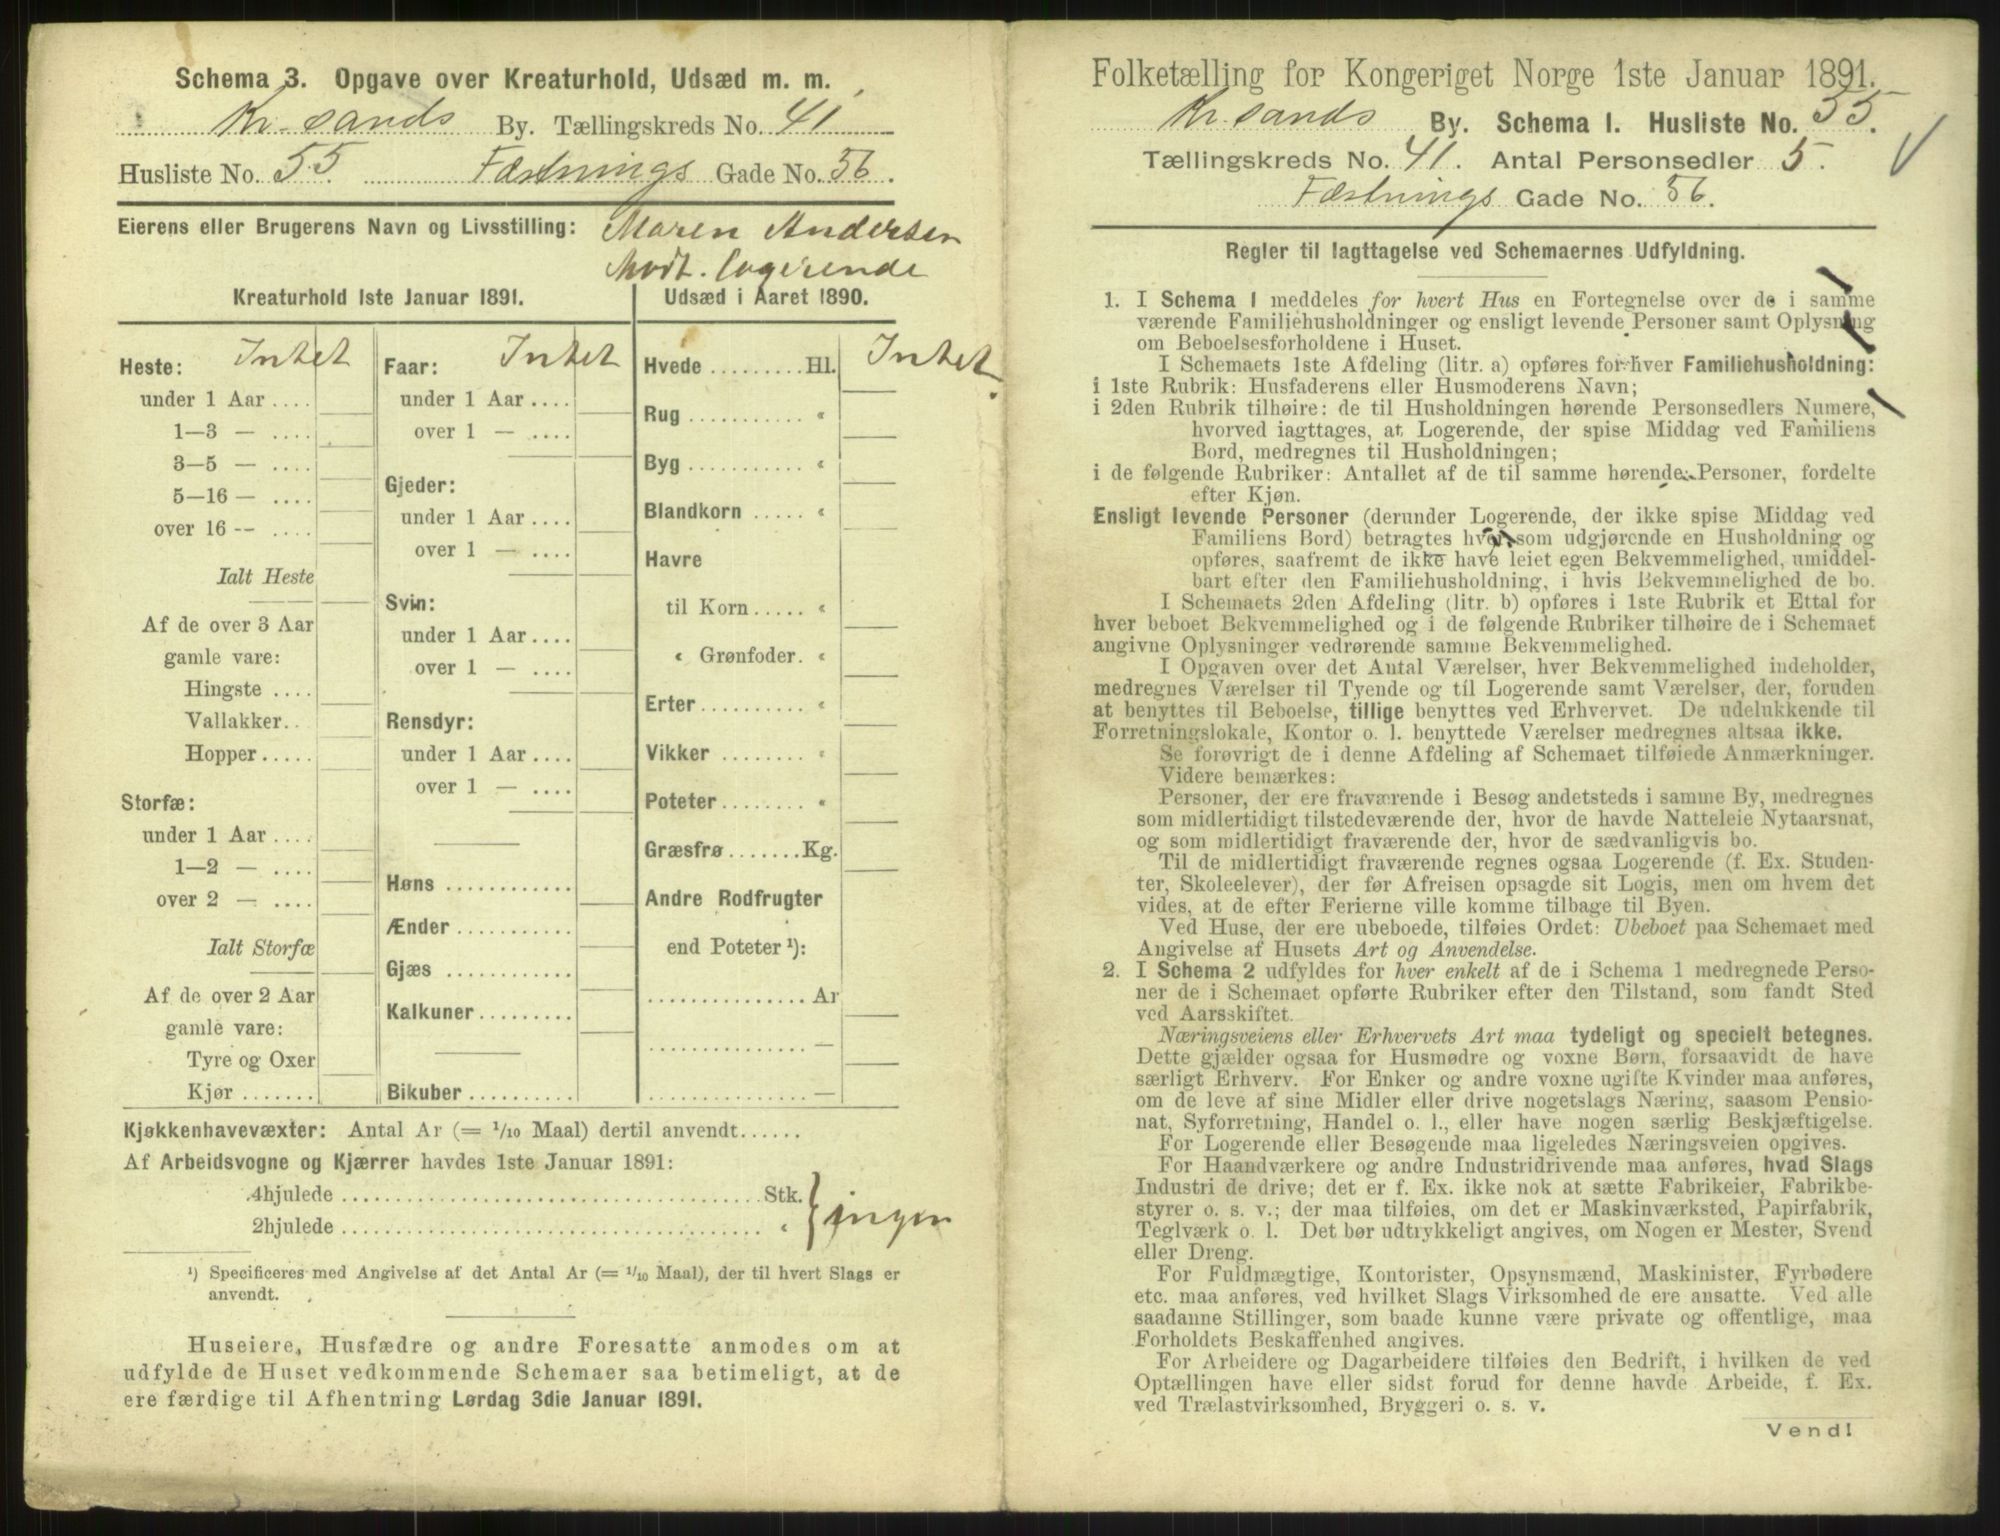 Schema 3. Opgave over Kreaturhold, Udsæd m. m.
Kr.sands By. Tællingskreds No. 41
Husliste No. 55. Fæstnings Gade No. 56.
Eierens eller Brugerens Navn og Livsstilling: Maren Andersen
Modt. logerende
Kreaturhold 1ste Januar 1891.
Heste: Intet
under 1 Aar ....
1—3 — ....
3—5 — ....
5—16 — ....
over 16 -- ....
Ialt Heste
Af de over 3 Aar
gamle vare:
Hingste ....
Vallakker..
Hopper.....
Storfæ:
under 1 Aar ....
1—2 — ....
over 2 — ....
Ialt Storfæ
Af de over 2 Aar
gamle vare:
Tyre og Oxer
Kjør .......
Faar: Intet
under 1 Aar ....
over 1 — ....
Gjeder:
under 1 Aar ....
over 1 — ....
Svin:
under 1 Aar ....
over 1 — ....
Rensdyr:
under 1 Aar ....
over 1 — ....
Høns ............
Ænder ...........
Gjæs ............
Kalkuner.........
Bikuber ..........
Udsæd i Aaret 1890.
Hvede .........Hl. Intet.
Rug ........... «
Byg ........... «
Blandkorn ..... «
Havre
til Korn ..... «
« Grønfoder. «
Erter.......... «
Vikker ........ «
Poteter ........ «
Græsfrø .......Kg.
Andre Rodfrugter
end Poteter ¹):
............... Ar
............... —
............... —
Kjøkkenhavevæxter: Antal Ar (= 1/10 Maal) dertil anvendt......
Af Arbeidsvogne og Kjærrer havdes 1ste Januar 1891:
4hjulede ........................................ Stk. } ingen
2hjulede ........................................ «
¹) Specificeres med Angivelse af det Antal Ar (= 1/10 Maal), der til hvert Slags er
anvendt.
Huseiere, Husfædre og andre Foresatte anmodes om at
udfylde de Huset vedkommende Schemaer saa betimeligt, at de
ere færdige til Afhentning Lørdag 3die Januar 1891.
Folketælling for Kongeriget Norge 1ste Januar 1891.
Kr.sands By. Schema I. Husliste No. 55.
Tællingskreds No. 41. Antal Personsedler 5.
Fæstnings Gade No. 56.
Regler til Iagttagelse ved Schemaernes Udfyldning.
1. I Schema I meddeles for hvert Hus en Fortegnelse over de i samme
værende Familiehusholdninger og ensligt levende Personer samt Oplysning
om Beboelsesforholdene i Huset.
I Schemaets 1ste Afdeling (litr. a) opføres for hver Familiehusholdning:
i 1ste Rubrik: Husfaderens eller Husmoderens Navn;
i 2den Rubrik tilhøire: de til Husholdningen hørende Personsedlers Numere,
hvorved iagttages, at Logerende, der spise Middag ved Familiens
Bord, medregnes til Husholdningen;
i de følgende Rubriker: Antallet af de til samme hørende Personer, fordelte
efter Kjøn.
Ensligt levende Personer (derunder Logerende, der ikke spise Middag ved
Familiens Bord) betragtes hver som udgjørende en Husholdning og
opføres, saafremt de ikke have leiet egen Bekvemmelighed, umiddel-
bart efter den Familiehusholdning, i hvis Bekvemmelighed de bo.
I Schemaets 2den Afdeling (litr. b) opføres i 1ste Rubrik et Ettal for
hver beboet Bekvemmelighed og i de følgende Rubriker tilhøire de i Schemaet
angivne Oplysninger vedrørende samme Bekvemmelighed.
I Opgaven over det Antal Værelser, hver Bekvemmelighed indeholder,
medregnes Værelser til Tyende og til Logerende samt Værelser, der, foruden
at benyttes til Beboelse, tillige benyttes ved Erhvervet. De udelukkende til
Forretningslokale, Kontor o. l. benyttede Værelser medregnes altsaa ikke.
Se forøvrigt de i denne Afdeling af Schemaet tilføiede Anmærkninger.
Videre bemærkes:
Personer, der ere fraværende i Besøg andetsteds i samme By, medregnes
som midlertidigt tilstedeværende der, hvor de havde Natteleie Nytaarsnat,
og som midlertidigt fraværende der, hvor de sædvanligvis bo.
Til de midlertidigt fraværende regnes ogsaa Logerende (f. Ex. Studen-
ter, Skoleelever), der før Afreisen opsagde sit Logis, men om hvem det
vides, at de efter Ferierne ville komme tilbage til Byen.
Ved Huse, der ere ubeboede, tilføies Ordet: Ubeboet paa Schemaet med
Angivelse af Husets Art og Anvendelse.
2. I Schema 2 udfyldes for hver enkelt af de i Schema 1 medregnede Perso-
ner de i Schemaet opførte Rubriker efter den Tilstand, som fandt Sted
ved Aarsskiftet.
Næringsveiens eller Erhvervets Art maa tydeligt og specielt betegnes.
Dette gjælder ogsaa for Husmødre og voxne Børn, forsaavidt de have
særligt Erhverv. For Enker og andre voxne ugifte Kvinder maa anføres,
om de leve af sine Midler eller drive nogetslags Næring, saasom Pensio-
nat, Syforretning, Handel o. l., eller have nogen særlig Beskjæftigelse.
For Logerende eller Besøgende maa ligeledes Næringsveien opgives.
For Haandværkere og andre Industridrivende maa anføres, hvad Slags
Industri de drive; det er f. Ex. ikke nok at sætte Fabrikeier, Fabrikbe-
styrer o. s. v.; der maa tilføies, om det er Maskinværksted, Papirfabrik,
Teglværk o. l. Det bør udtrykkeligt angives, om Nogen er Mester, Svend
eller Dreng.
For Fuldmægtige, Kontorister, Opsynsmænd, Maskinister, Fyrbødere
etc. maa anføres, ved hvilket Slags Virksomhed de ere ansatte. Ved alle
saadanne Stillinger, som baade kunne være private og offentlige, maa
Forholdets Beskaffenhed angives.
For Arbeidere og Dagarbeidere tilføies den Bedrift, i hvilken de ved
Optællingen have eller sidst forud for denne havde Arbeide, f. Ex.
ved Trælastvirksomhed, Bryggeri o. s. v.
Vend!